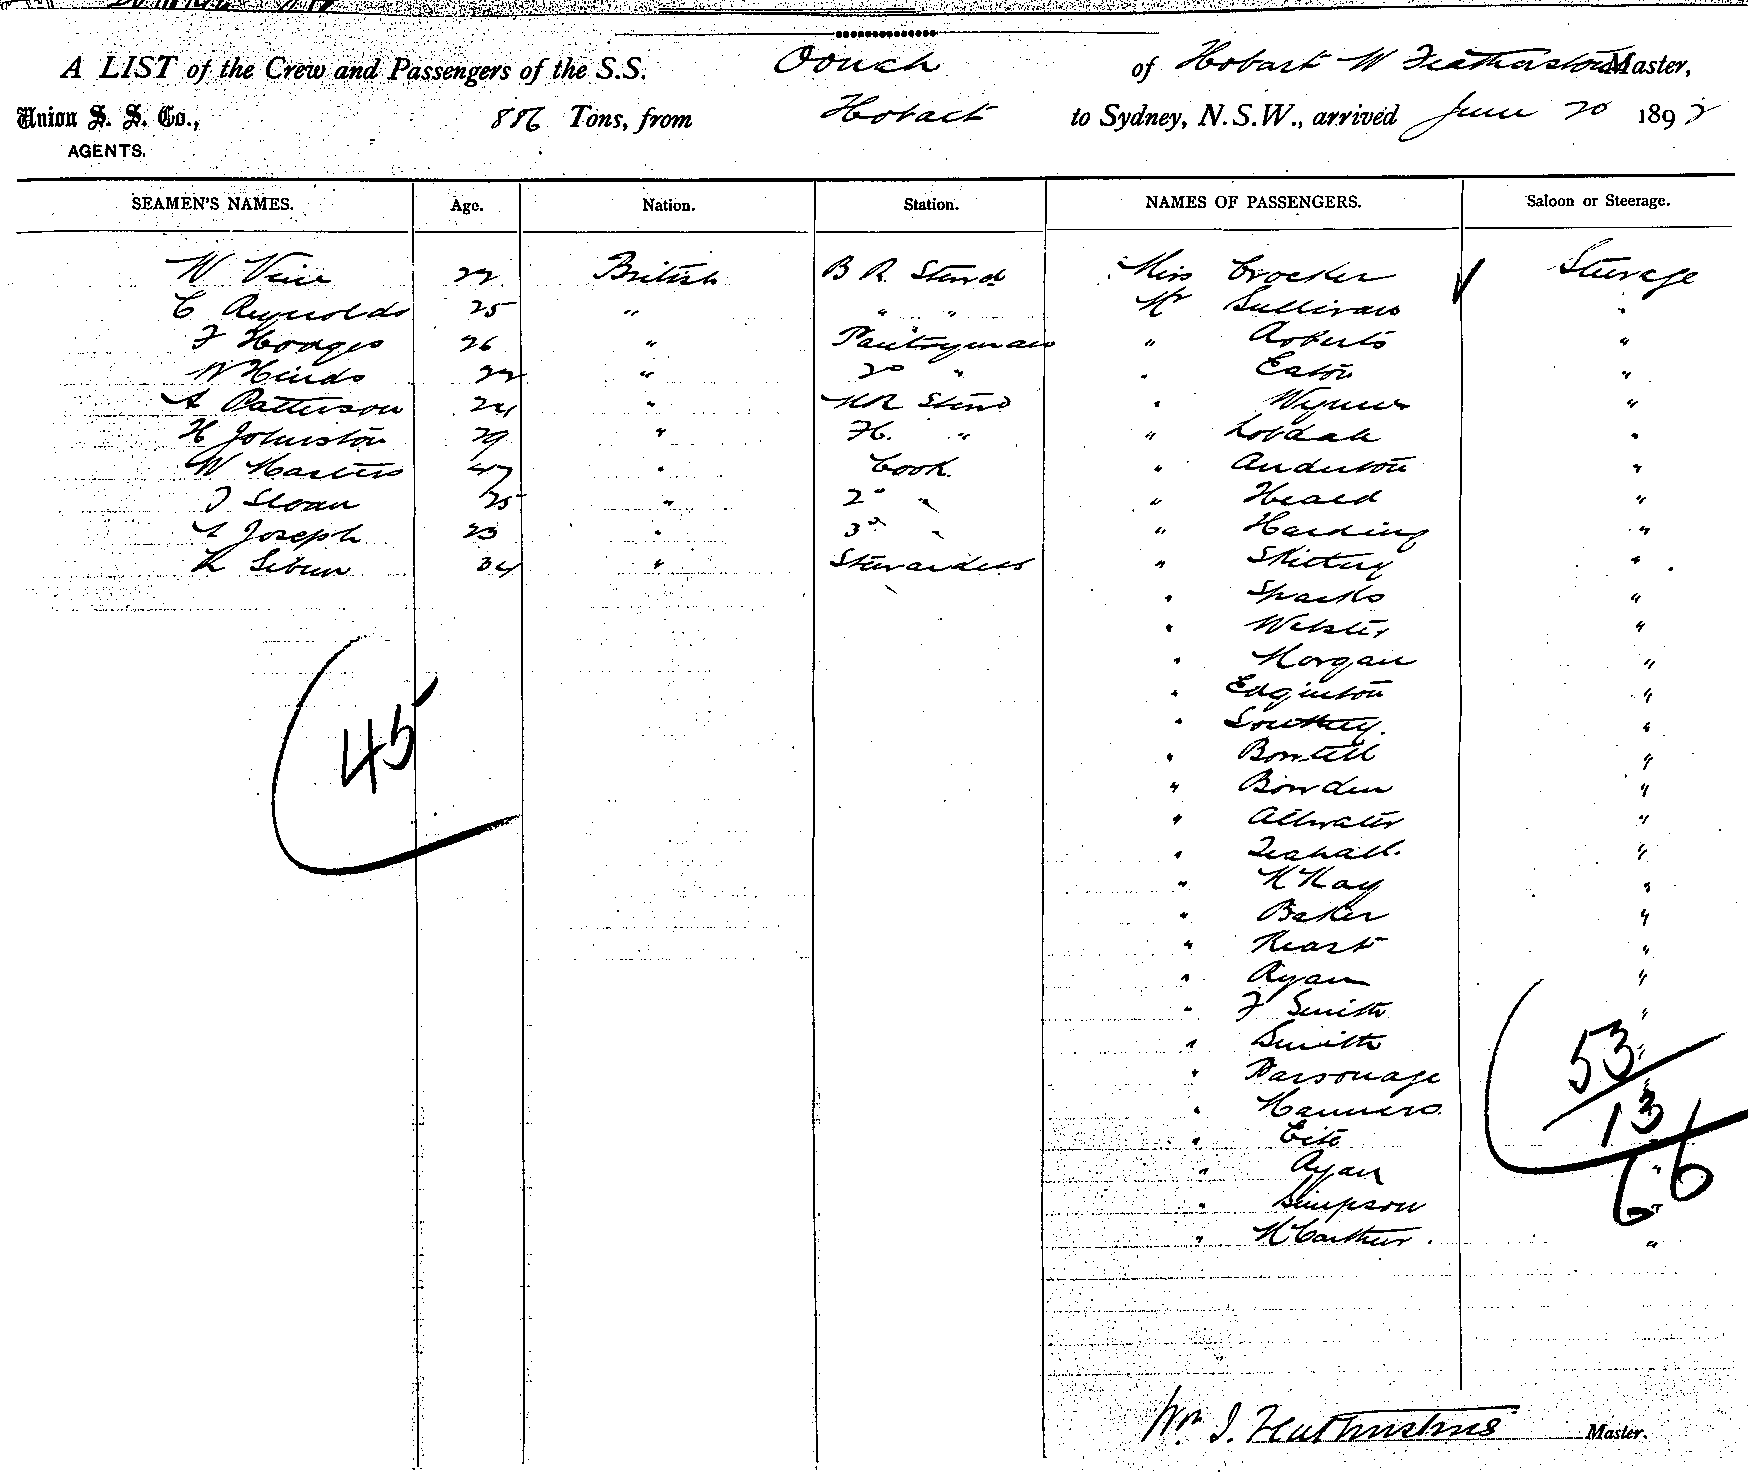 A LIST of the Crew and Passengers of the S.S. Oonah of Hobart W Featherstone Master,
Union S. S. Co., 886 Tons, from Hobart to Sydney, N.S.W., arrived June 20 1892
AGENTS.
SEAMEN'S NAMES. Age. Nation. Station. NAMES OF PASSENGERS. Saloon or Steerage.
W Vine 22 British B R Stewd Miss Crocker Steerage
C Reynolds 25 " " " Mr Sullivan "
F Hodges 26 " Pantryman " Roberts "
W Hinds 22 " 2nd " " Eaton "
A Patterson 24 " Stewd " "
H Johnston 29 " " " "
W Masters 47 " Cook " Anderton "
J Sloan 25 " 2nd " " Heard "
A Joseph 23 " 3rd " " Harding "
L Sibun 34 " Stewardess " "
" Sparks "
" Webster "
" Morgan "
" Edginton "
" Southey "
" Bontell "
" Bowden "
" Attwater "
" "
" McKay "
" Baker "
" "
" Ryan "
" F Smith "
" Smith
" Parsonage
" Manners
"
" Ryan "
" Simpson "
" McCarthur "
45
53
13
66
Wm J. Featherstone Master.